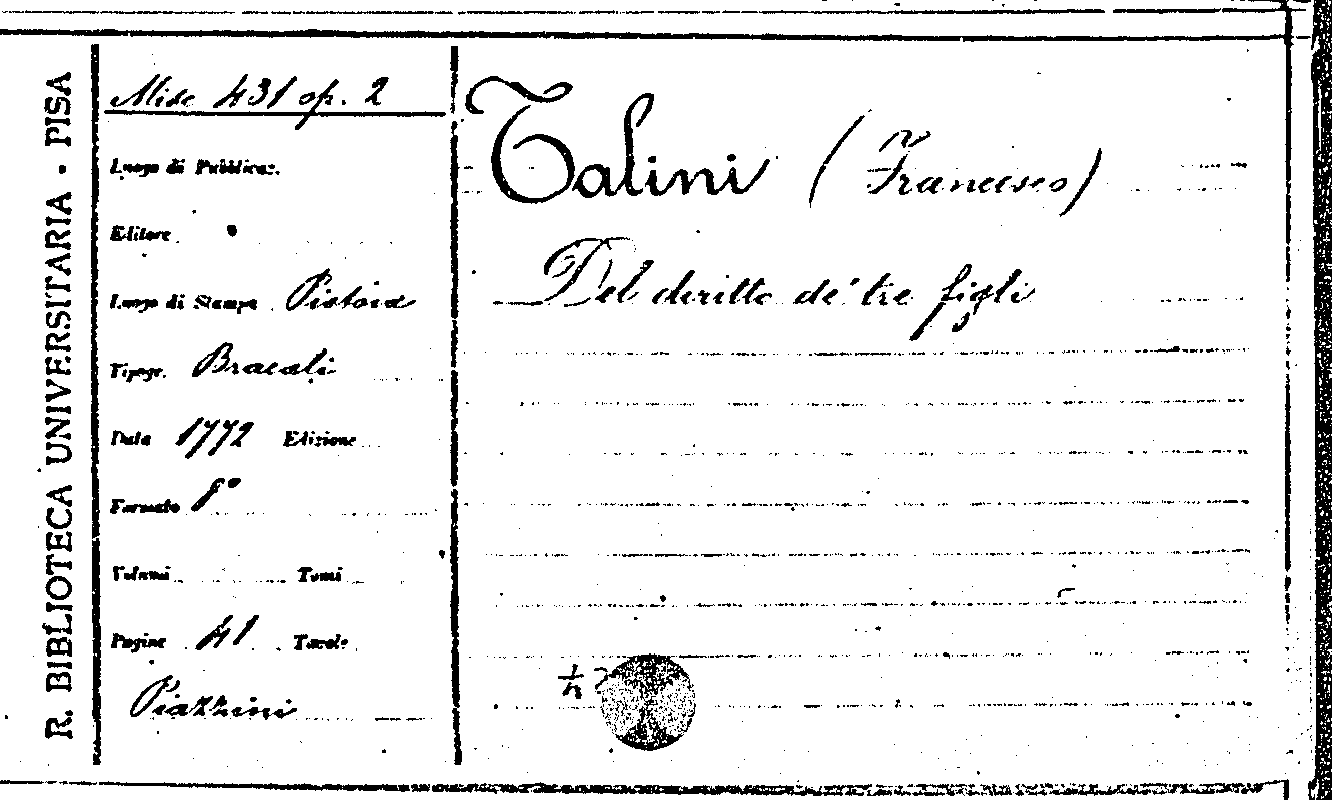 R. BIBLIOTECA UNIVERSITARIA - PISA
Misc 431 op. 2
Luogo di Pubblicaz.
Editore
Luogo di Stampa Pistoia
Tipogr. Bracali
Data 1772 Edizione
Formato 8°
Volumi Tomi
Pagine 41 Tavole
Piazzini
Talini (Francesco)
Del diritto de' tre figli